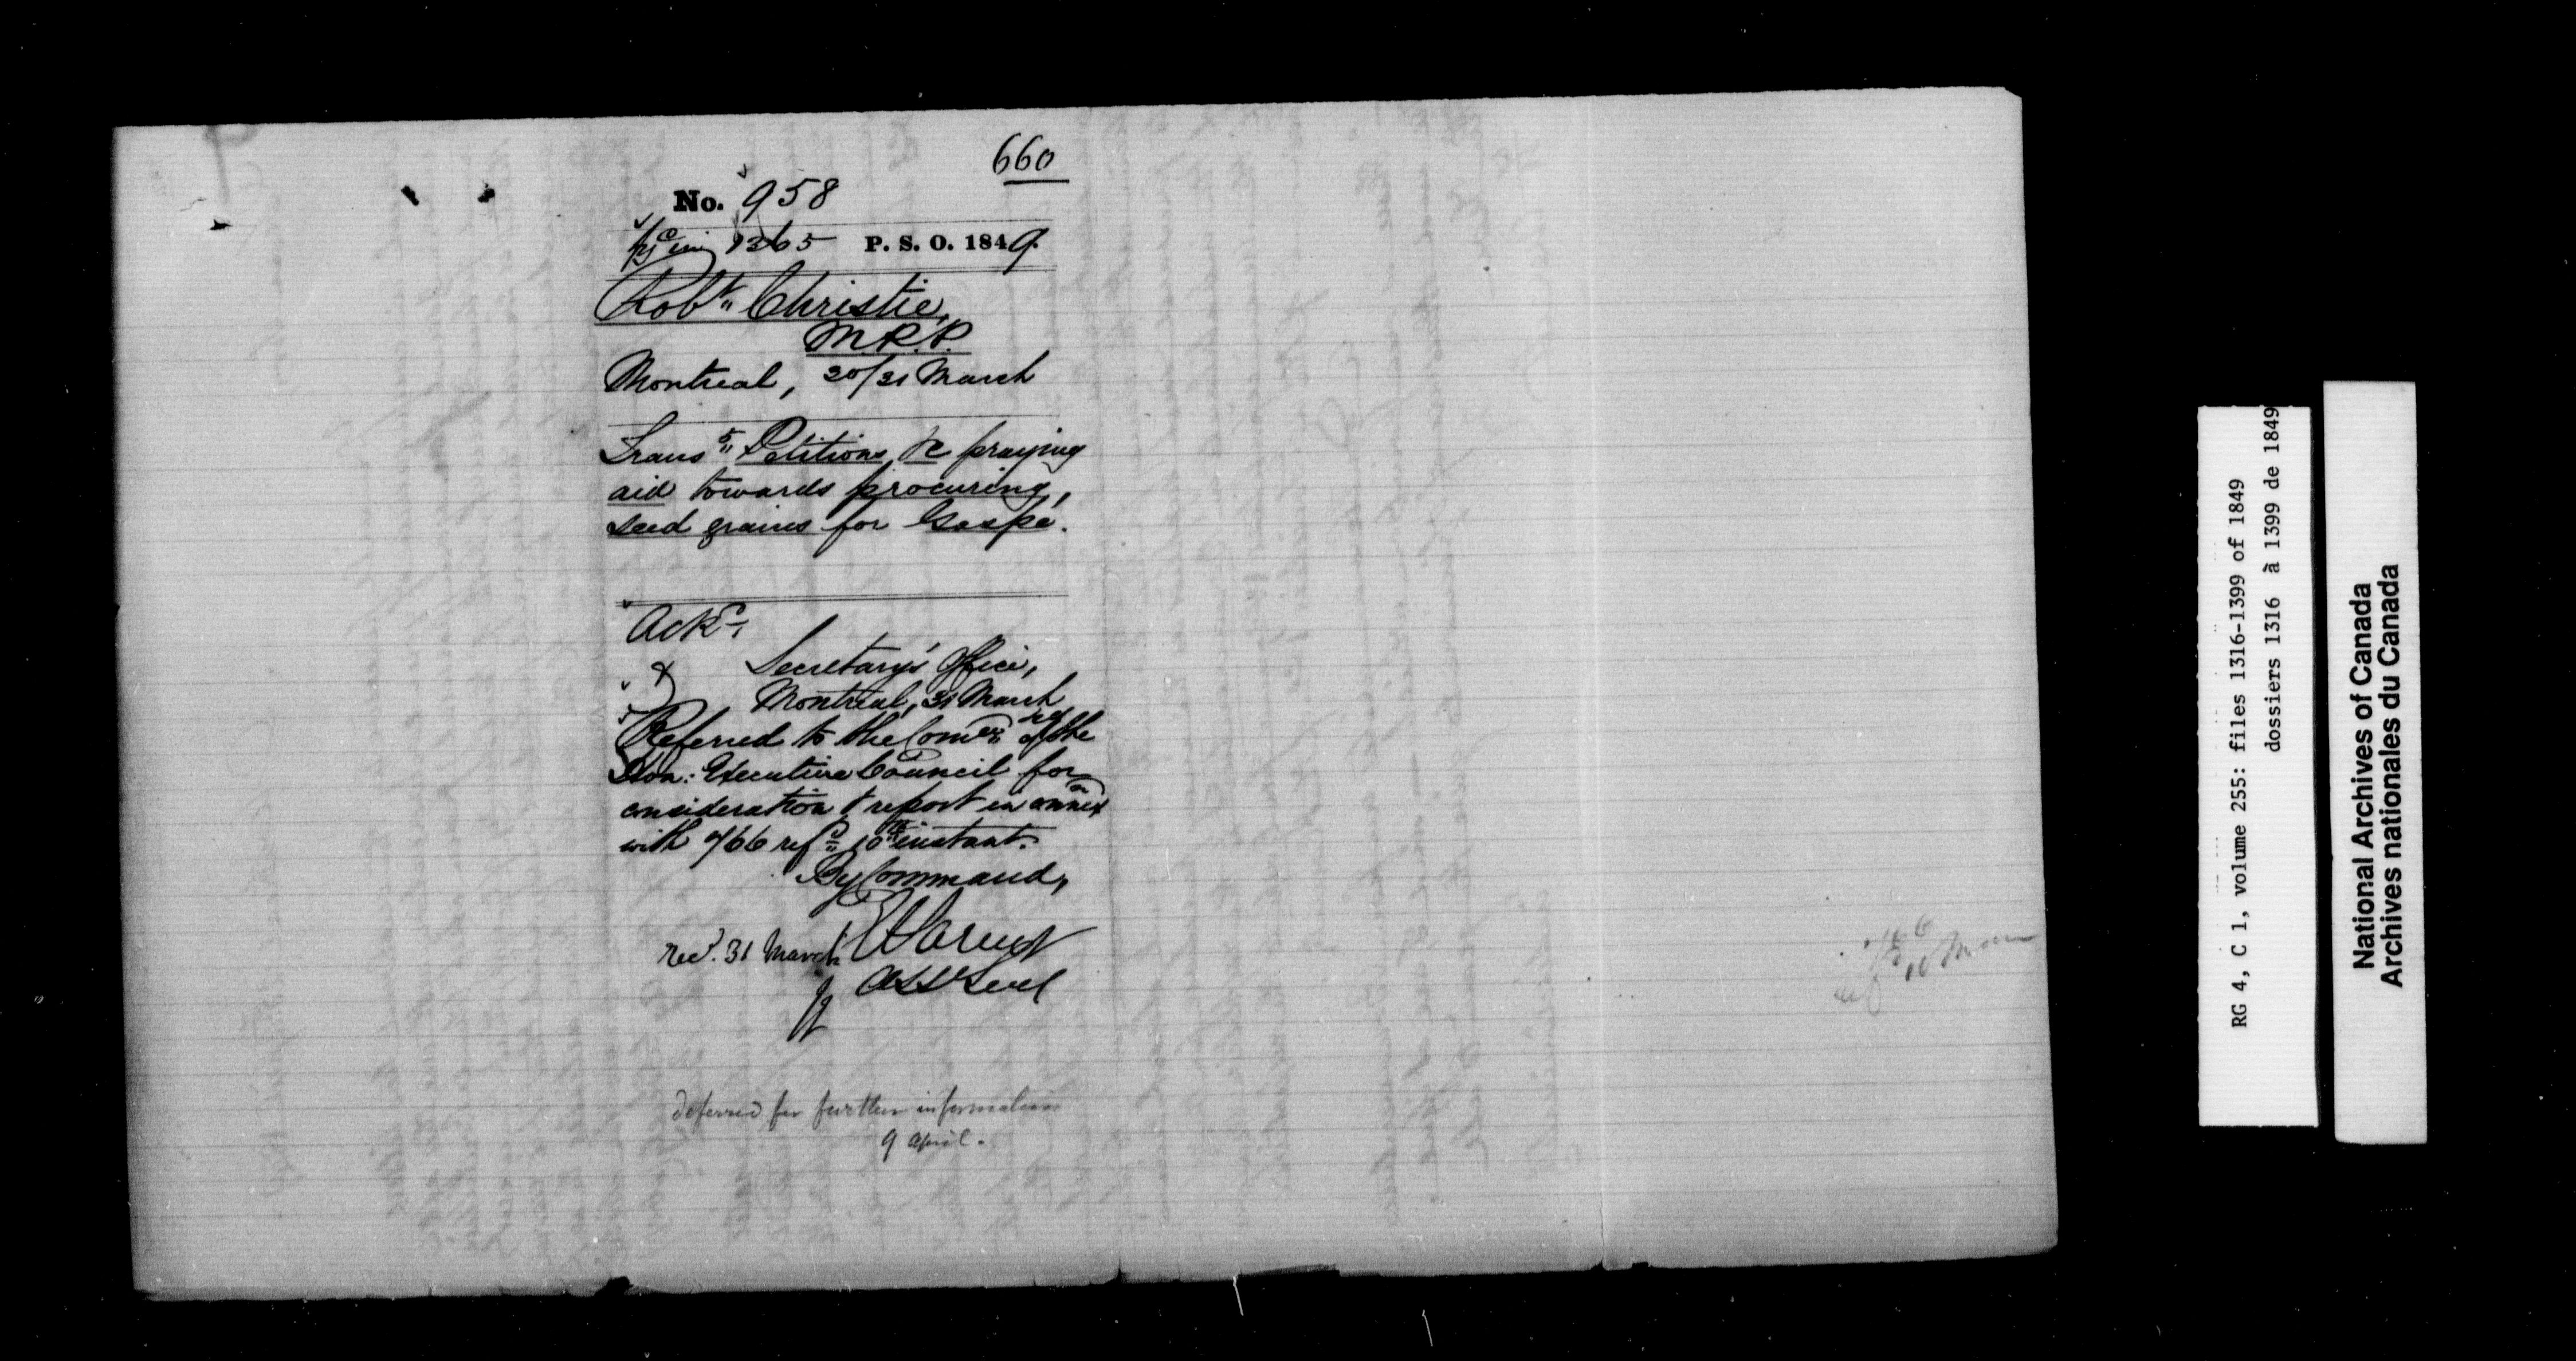 660
No. 958
1365 P. S. O. 1849.
Robt Christie,
M.P.P.
Montreal, 30/31 March
Trans5 Petitions &c praying
aid towards procuring,
seed grains for Gaspé.
Ackd
Secretary's Office,
Montreal, 31 March
Referred to the Comee of the
Hon: Executive Council for
consideration & report in annex
with 766 refd 10th instant.
By Command,
Recd. 31 March
Asst Secy
deferred for further information
9 April.
766
10 Mar
RG 4, C 1, volume 255: files 1316-1399 of 1849
dossiers 1316 à 1399 de 1849
National Archives of Canada
Archives nationales du Canada